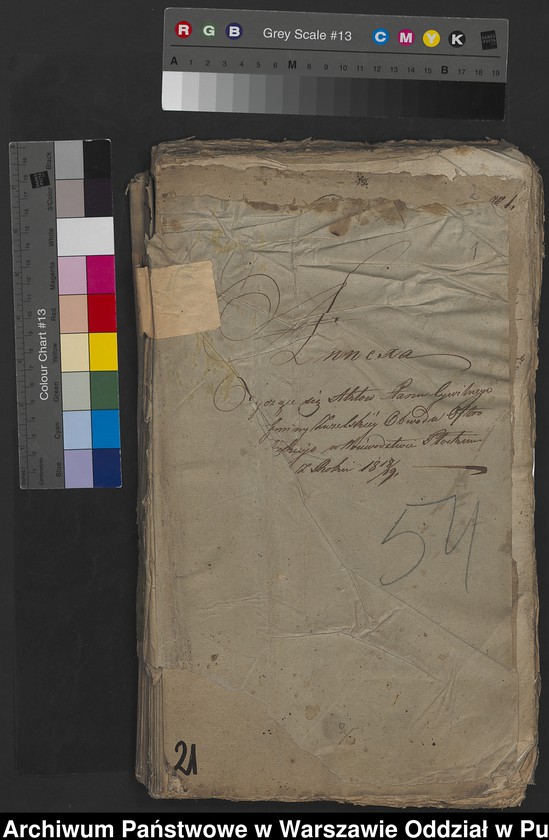 R G B Grey Scale #13 C M Y K
A 1 2 3 4 5 6 M 8 9 10 11 12 13 14 15 B 17 18 19
Colour Chart #13
Black
3-Color
White
Magenta
Red
Yellow
Green
Cyan
Blue
№ 1.
Annexa
Tyczące się Aktów Stanu Cywilnego
Gminy Obwodu Ostro
łęckiego w Województwie Płockim
Z Roku 1818/19.
54
21
Archiwum Państwowe w Warszawie Oddział w Pu